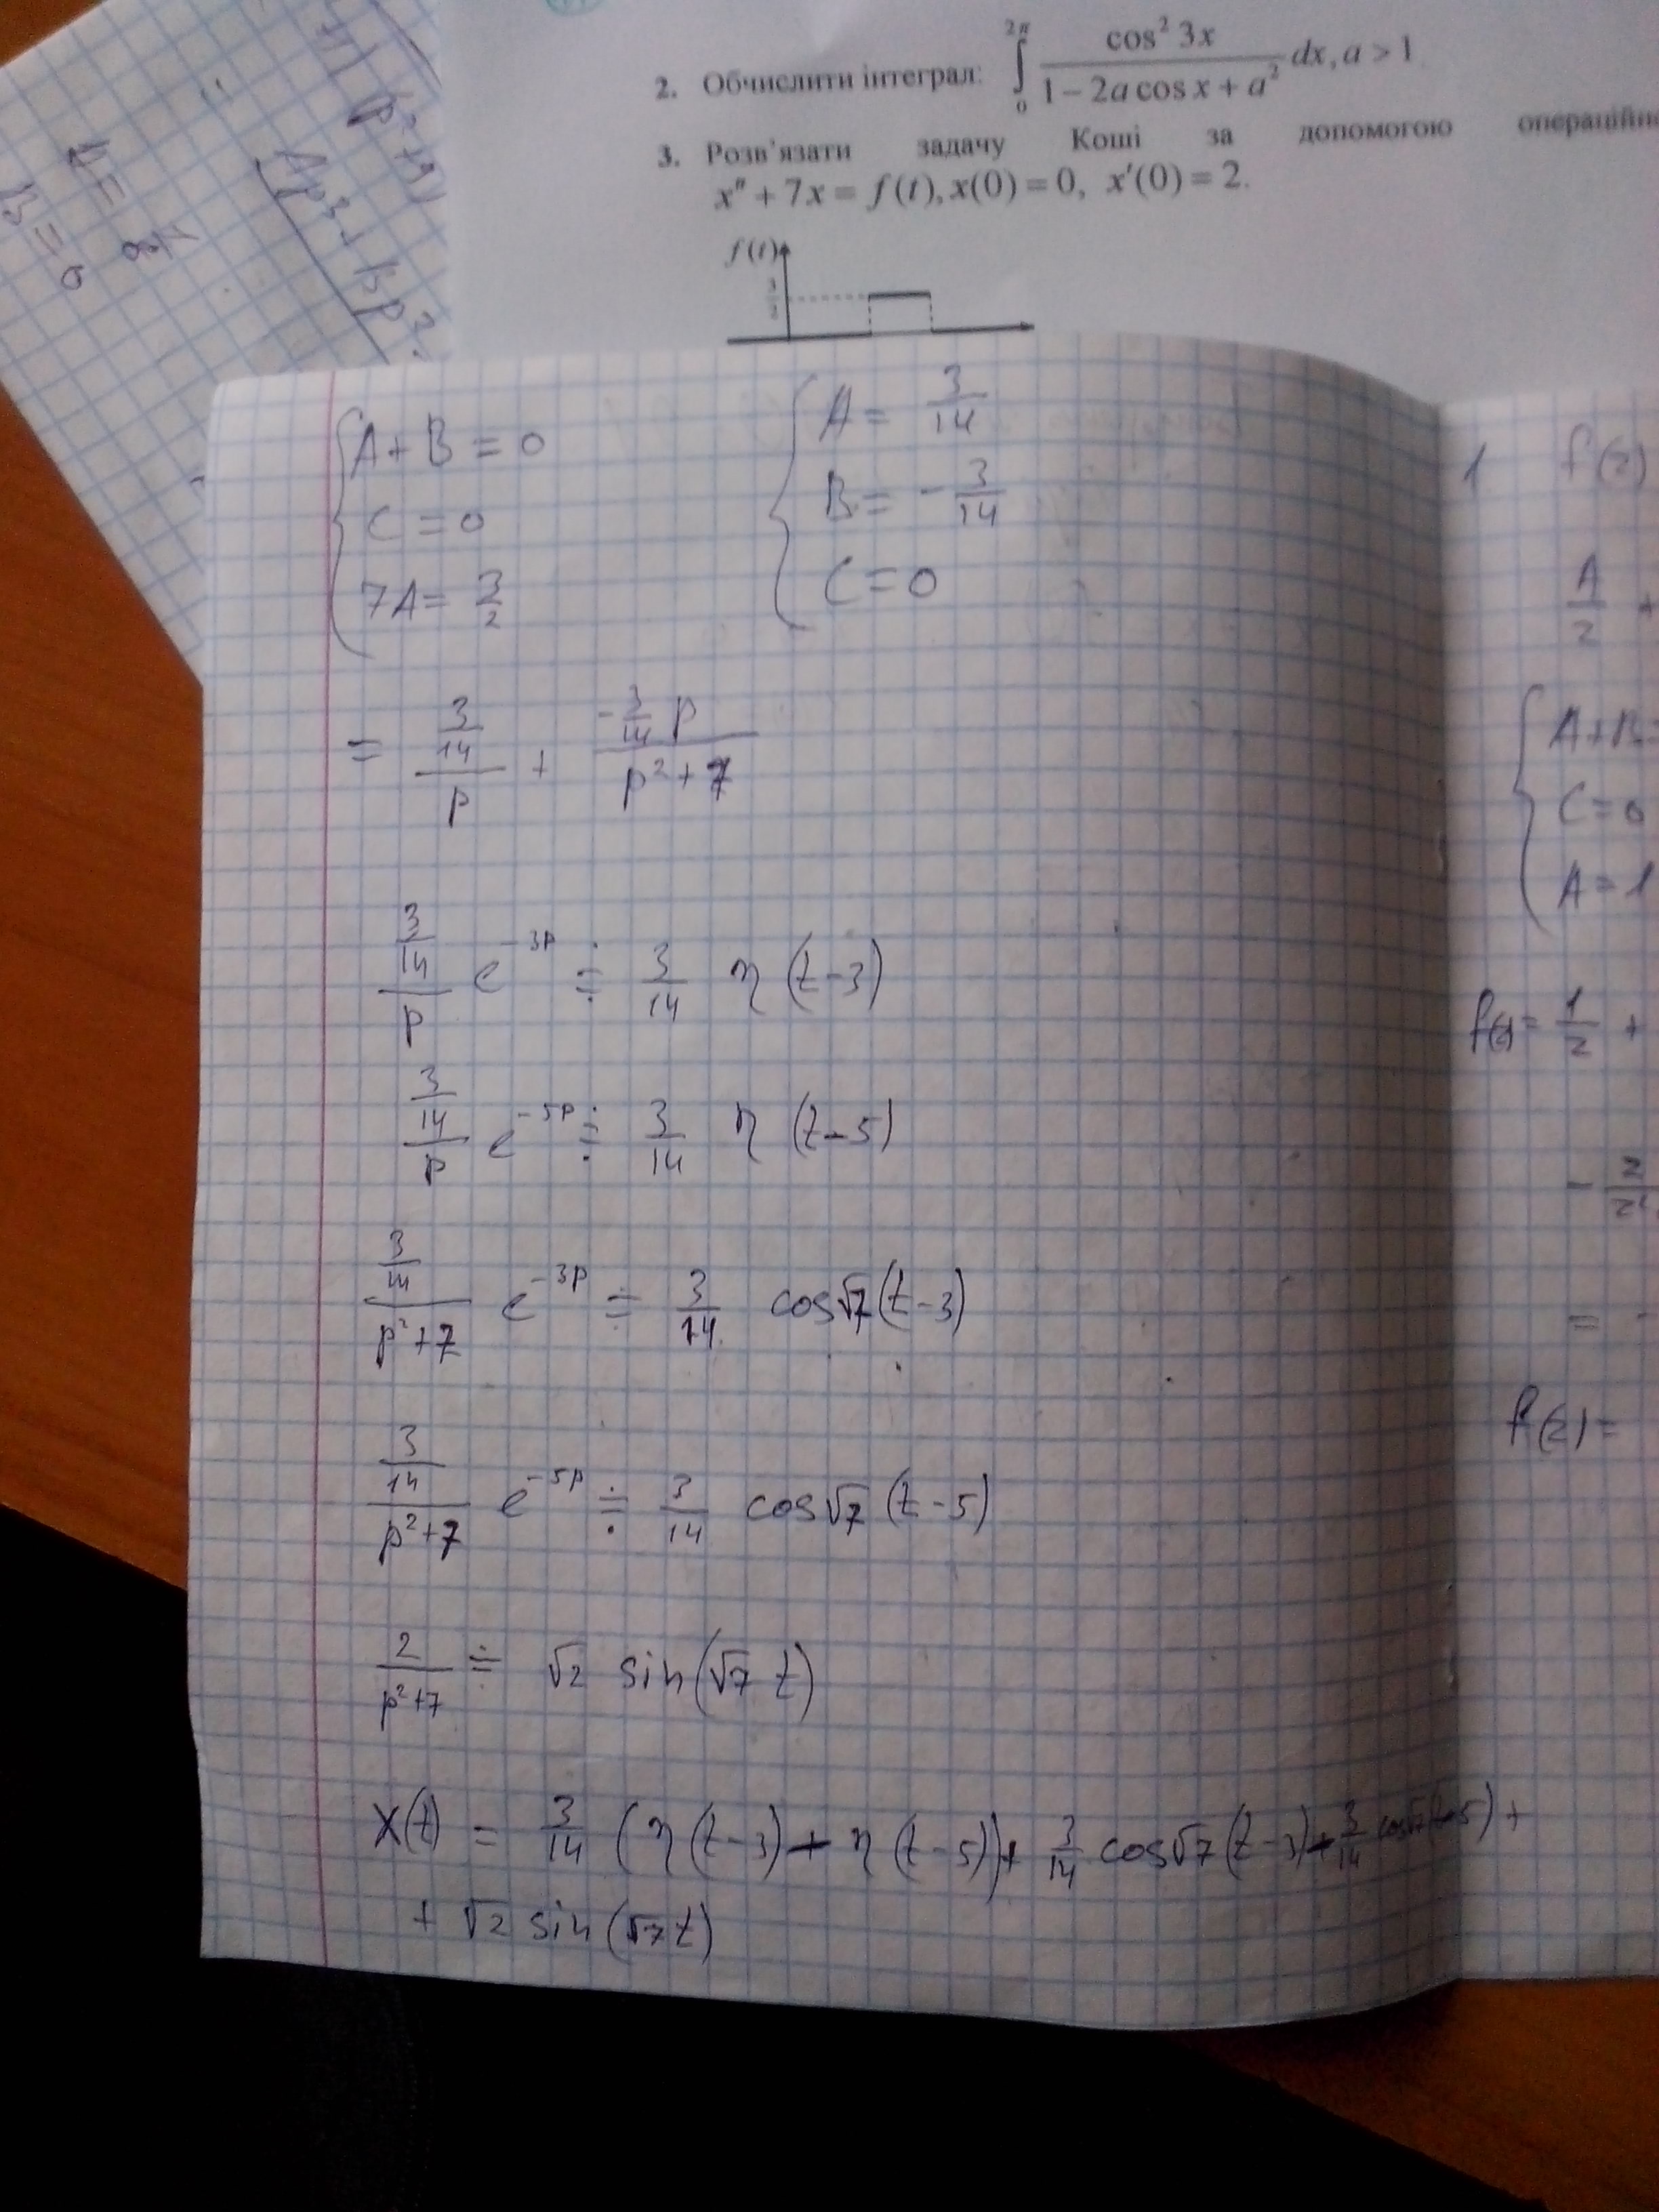 2. Обчислити інтеграл: ∫₀^{2π} cos² 3x / (1 − 2a cos x + a²) dx, a > 1
3. Розв'язати задачу Коші за допомогою
x″ + 7x = f(t), x(0) = 0, x′(0) = 2.
f(t)
3/2
A + B = 0
C = 0
7A = 3/2
A = 3/14
B = − 3/14
C = 0
= (3/14)/p + (−3/14 p)/(p² + 7)
(3/14)/p e^{−3p} ≑ 3/14 η (t−3)
(3/14)/p e^{−5p} ≑ 3/14 η (t−5)
(3/14)/(p²+7) e^{−3p} ≑ 3/14 cos√7 (t−3)
(3/14)/(p²+7) e^{−5p} ≑ 3/14 cos√7 (t−5)
2/(p²+7) ≑ √2 sin(√7 t)
X(t) = 3/14 (η (t−3) + η (t−5)) + 3/14 cos√7 (t−3) + 3/14 cos√7(t−5) +
+ √2 sin (√7 t)
1 f(z)
A/z +
C = 0
A = 1
f(z) = 1/z +
f(z) =